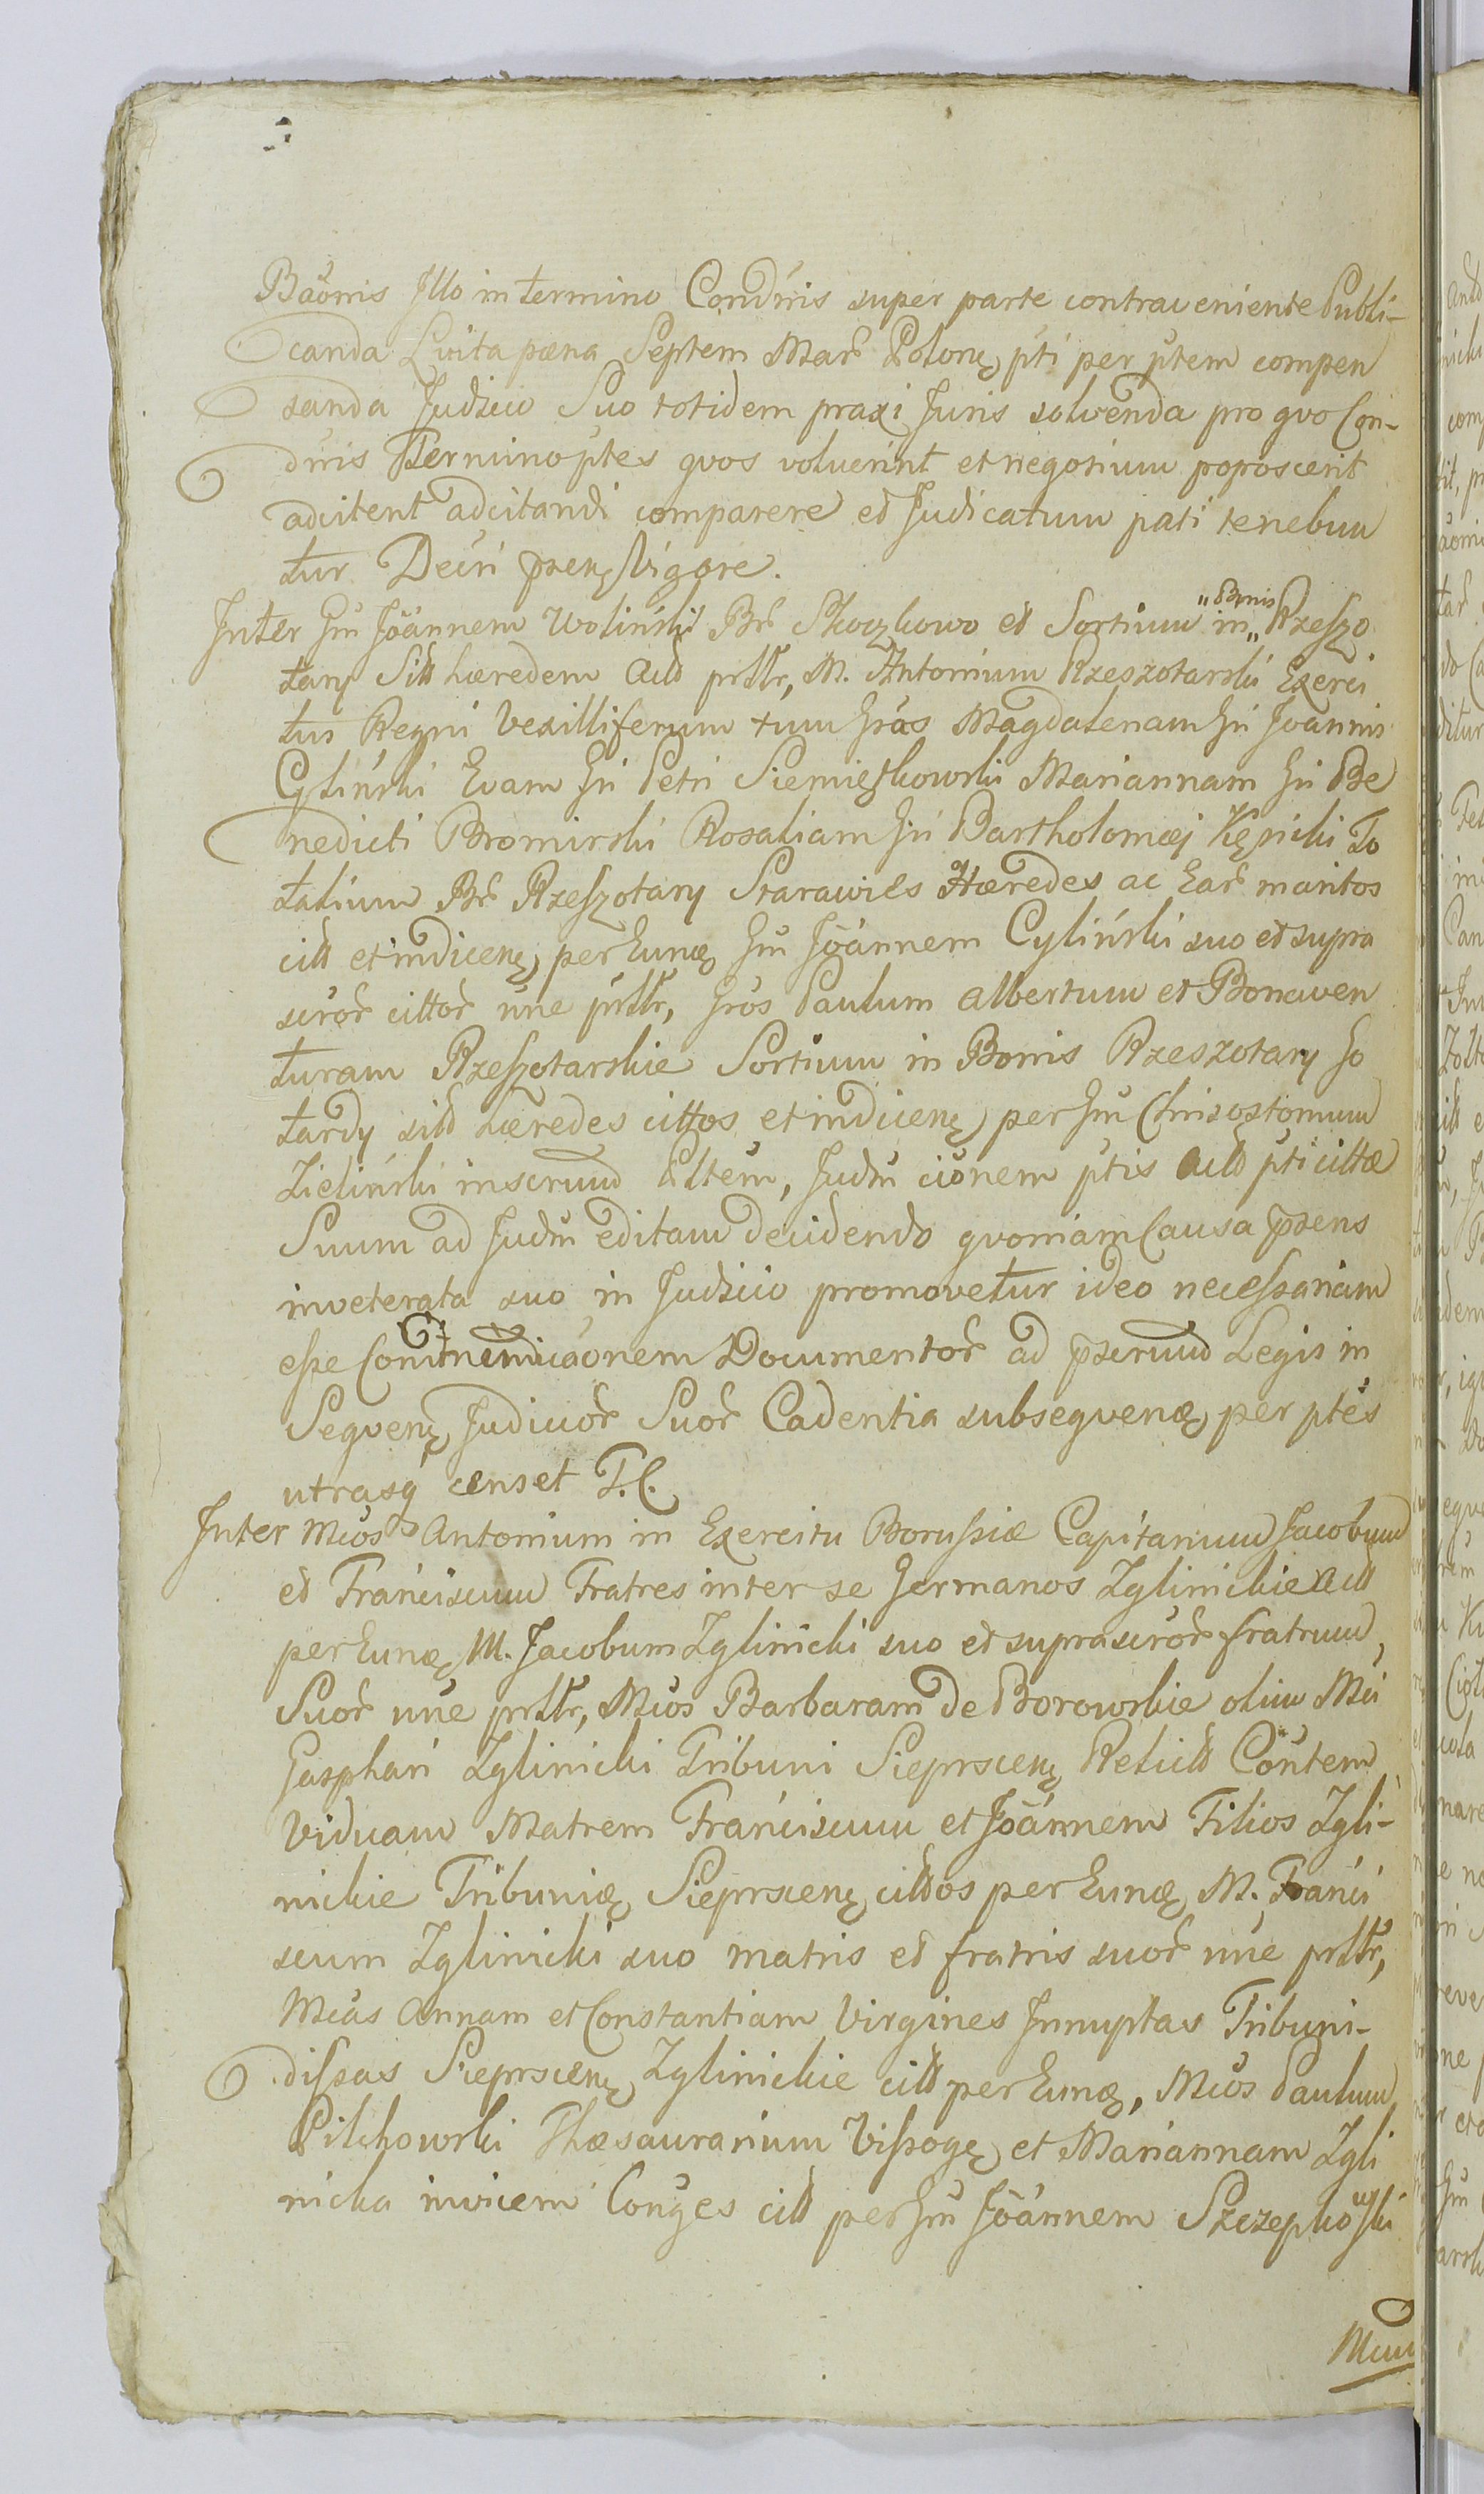 Baõnis Illo in termino Condris super parte contraveniente Publi-
canda Luita pæna Septem Mar Polonę pti per ptem compen
sanda Judicio Suo totidem praxi Juris solvenda pro qvo Con-
dris Termino ptes qvos voluerint et negotium poposcerit
adcitent adcitandi comparere et Judicatum pati tenebun
tur Decri præsenę Vigore.
Inter Gm Joannem Woliński Br Skoczkowo et Sortium in "Bonis" Rzeszo
tary Sitt hæredem Actt prttr, M. Antonium Rzeszotarski Exerci
tus Regni Vexilliferum tum Gras Magdalenam Gri Joannis
Cyliński Evam Gri Petri Siemiątkowski Mariannam Gri Be
nedicti Bromirski Rosaliam Gri Bartholomæj Kęsicki To
talium Br Rzeszotary Starawieś Hæredes ac Ear maritos
citt et indicenę per Eunę Gm Joannem Cyliński suo et supra
scror cittor nne prttr, Gros Paulum Albertum et Bonaven
turam Rzeszotarskie Sortium in Bonis Rzeszotary Go
tardy sitt hæredes cittos et indicenę per Gm Chrisostomum
Zieliński inscrum Pltem, Judm cionem ptis Actt pti cittæ
Suum ad Judm editam decidendo qvoniam Causa præsens
inveterata suo in Judicio promovetur ideo necessariam
esse Commendicaonem Documentor ad pserum Legis in
Seqvenę Judicior Suor Cadentia subseqvenę per ptes
utrasq censet T. C.
Inter Mcos Antonium in Exercitu Borussiæ Capitanium Jacobum
et Franciscum Fratres inter se Germanos Zglinickie Actt
per Eunę M. Jacobum Zglinicki suo et suprascror fratrum
Suor nne prttr, Mcos Barbaram de Borowskie olim Mci
Gasphari Zglinicki Tribuni Sieprscenę Relictt Contem
Viduam Matrem Franciscum et Joannem Filios Zgli-
nickie Tribunię Sieprscenę cittos per Eunę M. Franci
scum Zglinicki suo matris et fratris suor nne prttr,
Mcas Annam et Constantiam Virgines Innuptas Tribuni-
dissas Sieprscenę Zglinickie citt per Eunę, Mcos Paulum
Pilchowski Thæsaurarium Vissogę et Mariannam Zgli
nicka invicem Conges citt per Gm Joannem Szczepkowski
Mcum